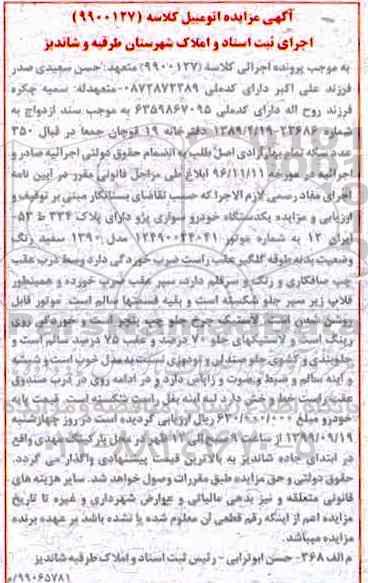 آگهی مزایده اتومبیل کلاسه (۹۹۰۰۱۲۷)
اجرای ثبت اسناد و املاک شهرستان طرقبه و شاندیز
به موجب پرونده اجرائی کلاسه (۹۹۰۰۱۲۷) متعهد: حسن سعیدی صدر
فرزند علی اکبر دارای کدملی ۰۸۷۲۸۷۲۳۸۹-متعهدله: سمیه چکره
فرزند روح اله دارای کدملی ۶۳۵۹۸۶۷۰۹۵ به موجب سند ازدواج به
شماره ۲۳۶۸۶-۱۳۸۹/۴/۱۹ دفترخانه ۱۹ قوچان جمعا در قبال ۳۵۰
عدد سکه تمام بهار آزادی اصل طلب به انضمام حقوق دولتی اجرائیه صادر و
اجرائیه در مورخه ۹۶/۱۱/۱۱ ابلاغ طی مراحل قانونی مقرر در آیین نامه
اجرای مفاد رسمی لازم الاجرا که حسب تقاضای بستانکار مبنی بر توقیف و
ارزیابی و مزایده یکدستگاه خودرو سواری پژو دارای پلاک ۳۳۴ ط ۵۳-
ایران ۱۲ به شماره موتور ۱۲۴۹۰۰۲۴۰۴۱ مدل ۱۳۹۰ سفید رنگ
وضعیت بدنه طوقه گلگیر عقب راست ضرب خوردگی دارد وسط درب عقب
چپ صافکاری و رنگ و سرقلم دارد، سپر عقب ضرب خورده و همینطور
قلاب زیر سپر جلو شکسته است و بقیه قسمتها سالم است. موتور قابل
روشن شدن است. لاستیک چرخ جلو چپ پنچر است و خوردگی روی
رینگ است و لاستیکهای جلو ۷۰ درصد و عقب ۷۵ درصد سالم است و
جلوبندی و کشوی جلو صندلی و تودوزی نسبت به مدل خوب است و شیشه
و آینه سالم و ضبط و صوت و زاپاس دارد و در ادامه روی در درب صندوق
عقب راست خط و خش دارد لبه آینه بغل راست شکسته است. قیمت پایه
خودرو مبلغ ۶۳۰/۰۰۰/۰۰۰ ریال ارزیابی گردیده است در روز چهارشنبه
۱۳۹۹/۰۹/۱۹ از ساعت ۹ صبح الی ۱۲ ظهر در محل پارکینگ مهدی واقع
در ابتدای جاده شاندیز به بالاترین قیمت پیشنهادی واگذار می گردد.
حقوق دولتی و حق مزایده طبق مقررات وصول خواهد شد. سایر هزینه های
قانونی متعلقه و نیز بدهی مالیاتی و عوارض شهرداری و غیره تا تاریخ
مزایده اعم از اینکه رقم قطعی آن معلوم شده یا نشده باشد بر عهده برنده
مزایده میباشد.
م الف ۳۶۸- حسن ابوترابی - رئیس ثبت اسناد و املاک طرقبه شاندیز
۹۹۰۶۵۷۸۱/م